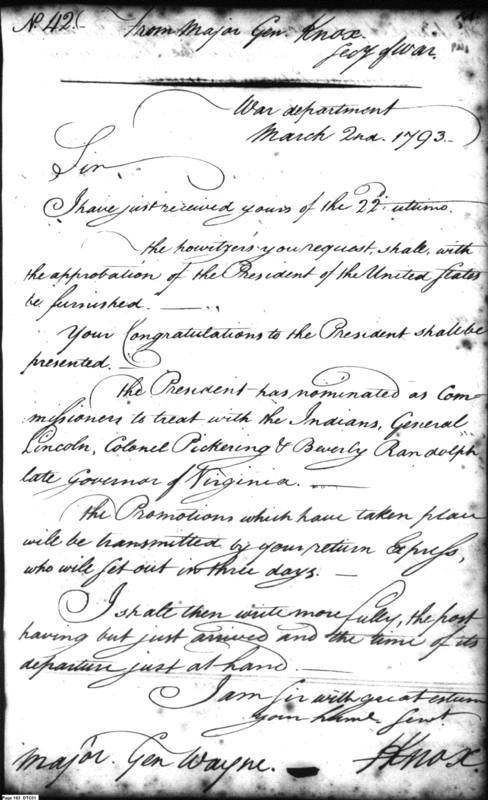 No. 42.
From Major Gen. Knox.
Secy of War.
War department
March 2nd. 1793.
Sir,
I have just received yours of the 22d. ultimo.
the howitzers you request, shall, with
the approbation of the President of the United States
be furnished.
Your Congratulations to the President shall be
presented.
the President has nominated as Com-
missioners to treat with the Indians, General
Lincoln, Colonel Pickering & Beverly Randolph
late Governor of Virginia.
the Promotions which have taken place
will be transmitted by your return Express,
who will set out in three days.
I shall then write more fully, the post
having but just arrived and the time of its
departure just at hand.
I am sir with great esteem
your humb. Servt
HKnox.
Major. Gen Wayne.
Page 163 DTC01